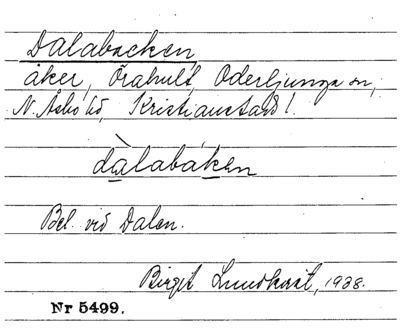 Dalabacken
åker, Örahult, Oderljunga sn,
N. Åsbo hd, Kristianstads l.
dàlabáken
Bel. vid Dalen.
Birgit Lundkvist, 1938.
Nr 5499.